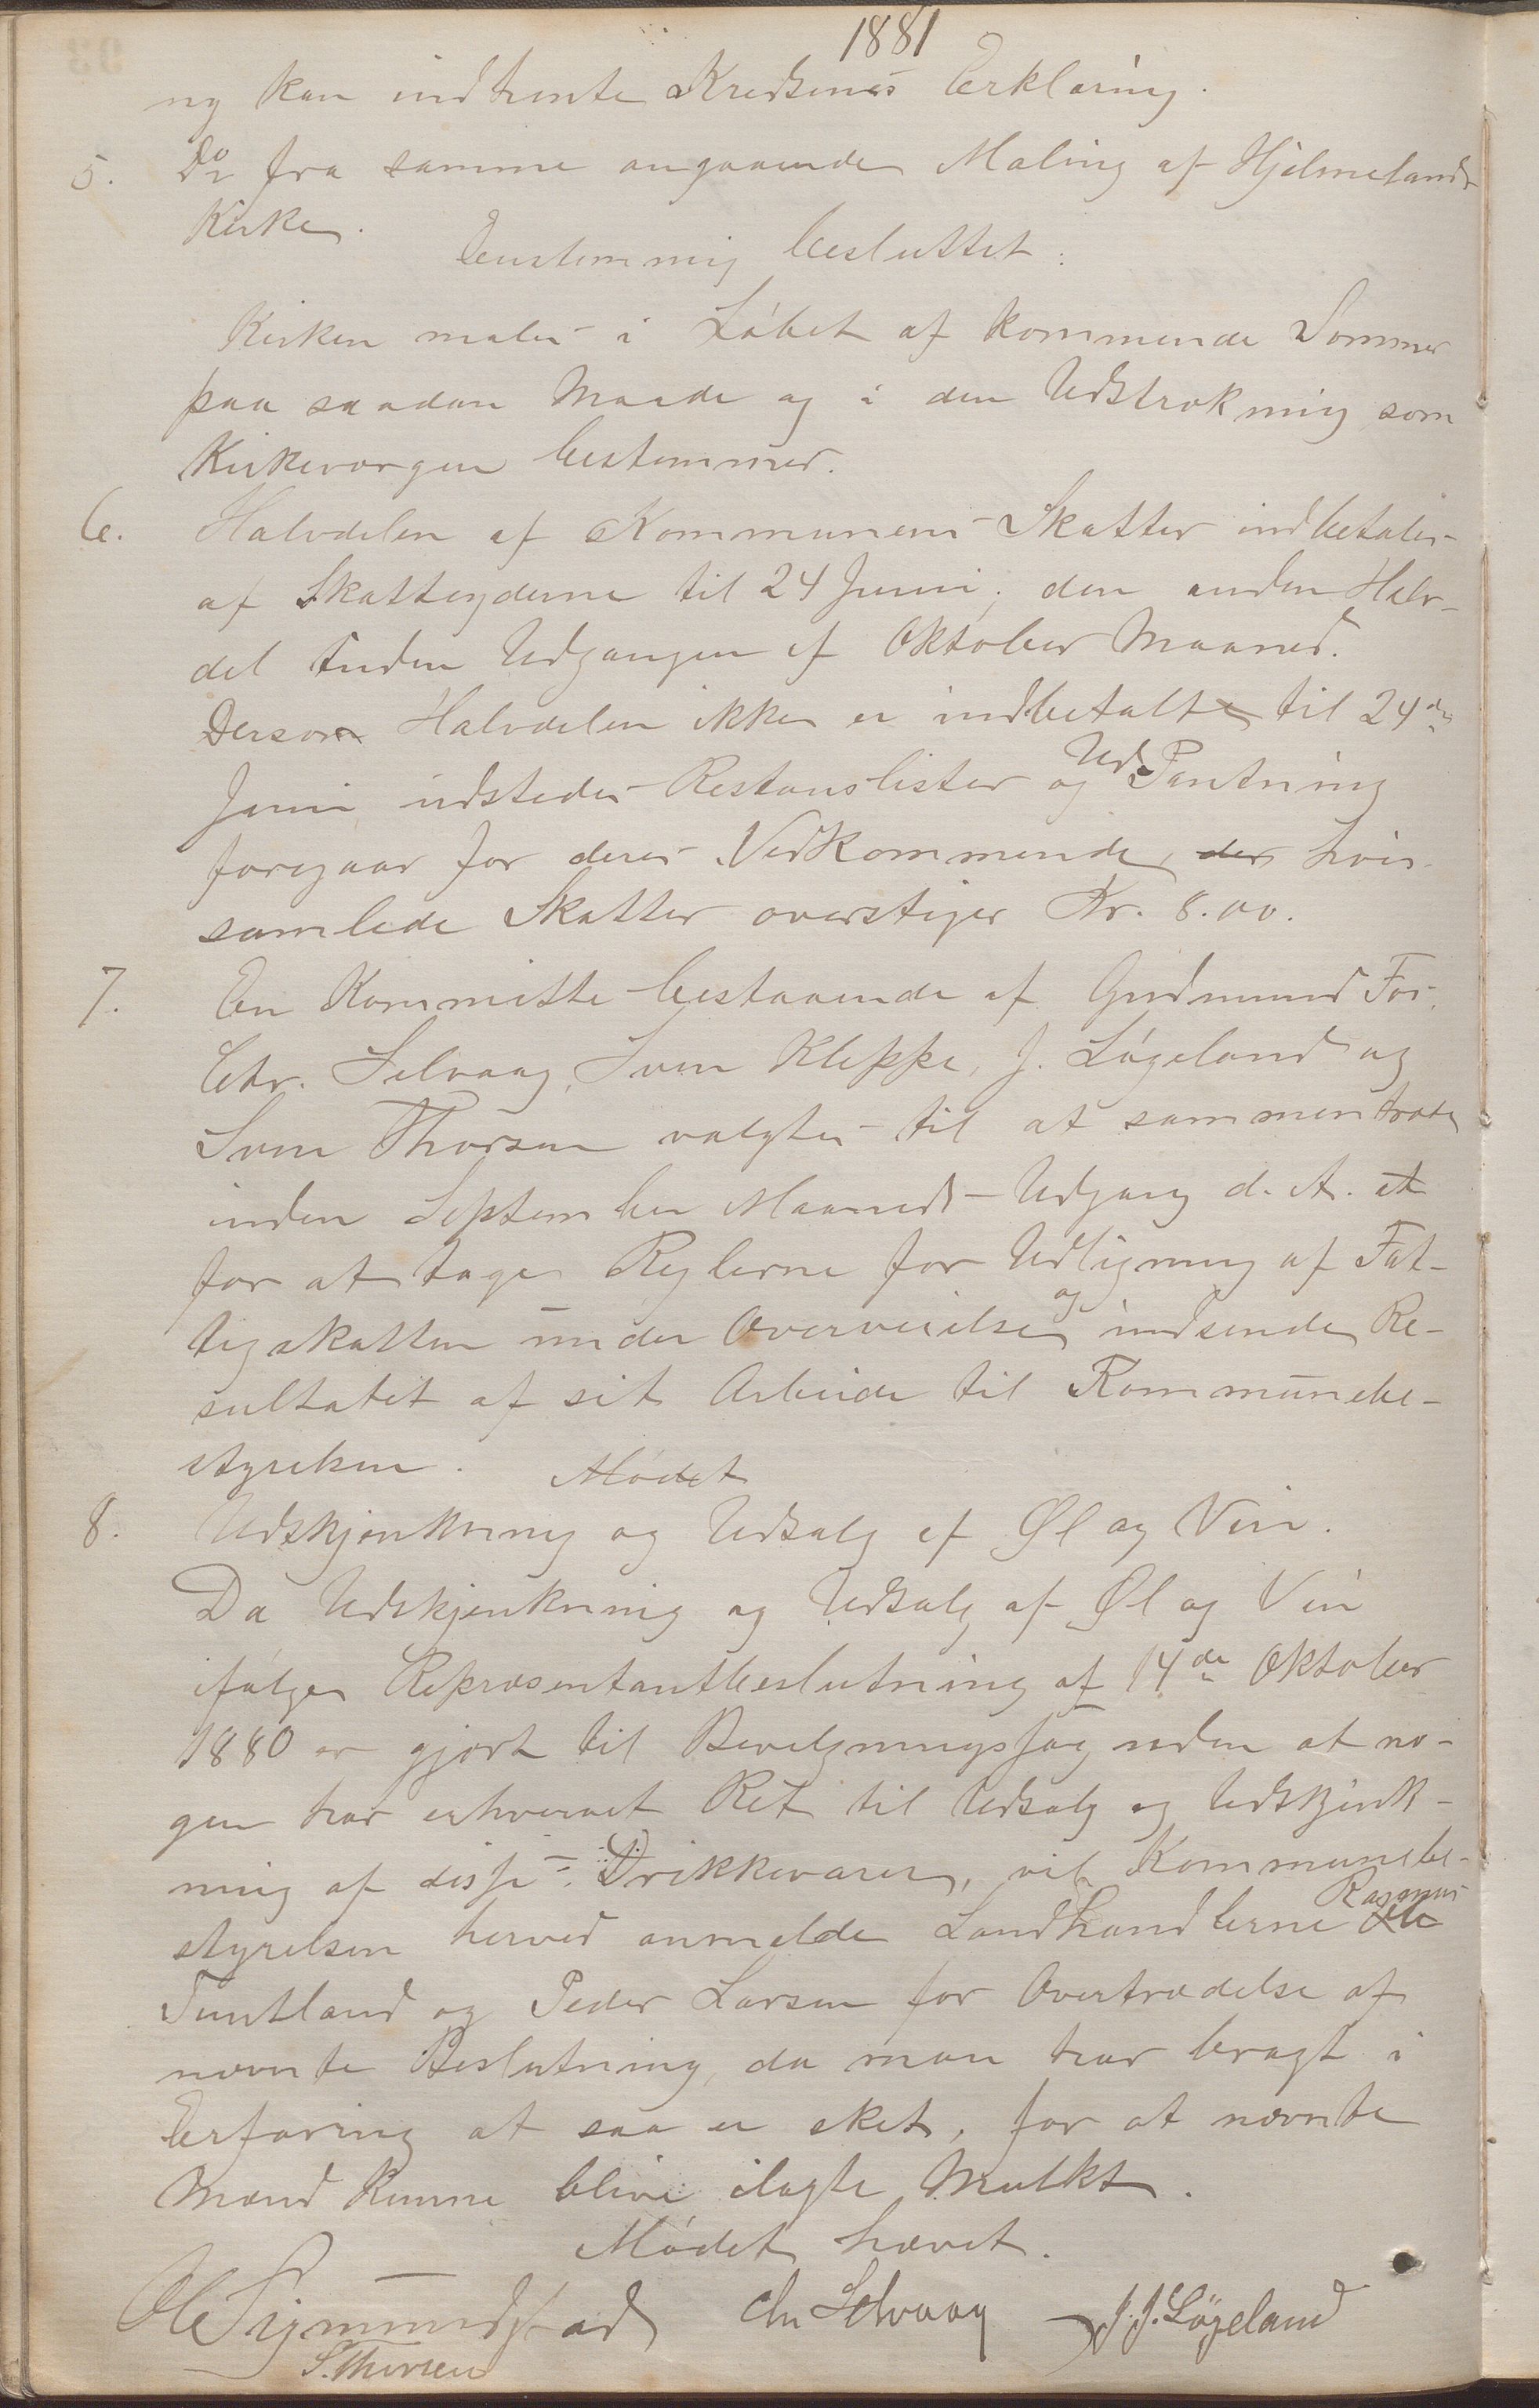 1881
ng kan indhente Kredsenes Erklæring.
5. Do fra samme angaaende Maling af Hjelmelands
Kirke.
Eenstemmig besluttet:
Kirken males i Løbet af kommende Sommer
paa saadan Maade og i den Udstrækning som
Kirkeværgen bestemmer.
6. Halvdelen af Kommunens Skatter indbetales
af Skatteyderne til 24 Juni; den anden Halv-
del inden Udgangen af Oktober Maaned.
Dersom Halvdelen ikke er indbetalt til 24de
Juni udstedes Restanslister og Ud-Pantning
foregaar for deres Vedkommende, der hvis
samlede Skatter overstiger Kr. 8.00.
7. En Kommitte bestaaende af Gudmund Fos,
Chr. Selvaag, Sven Kleppe, J. Løgeland og
Sven Thorsen valgtes til at sammentræde
inden September Maaneds Udgang d. A. at
for at tage Reglerne for Udligning af Fat-
tigskatten under Overveielse og indsende Re-
sultatet af sit Arbeide til Kommunebe-
styrelsen. Mødet
8. Udskjenkning og Udsalg af Øl og Vin.
Da Udskjenkning og Udsalg af Øl og Vin
ifølge Repræsentantbeslutning af 14de Oktober
1880 er gjort til Bevilgningssag uden at no-
gen har erhvervet Ret til Udsalg og Udskjenk-
ning af disse Drikkevarer, vil Kommunebe-
styrelsen herved anmelde Landhandlerne Ole Rasmus
Tuntland og Peder Larsen for Overtrædelse af
nævnte Beslutning, da man har bragt i
Erfaring at saa er sket, for at nævnte
Mænd kunne blive ilagte Mulkt.
Mødet hævet.
Ole Sigmundstad Chr Selvaag J. J. Løgeland
S. Thorsen